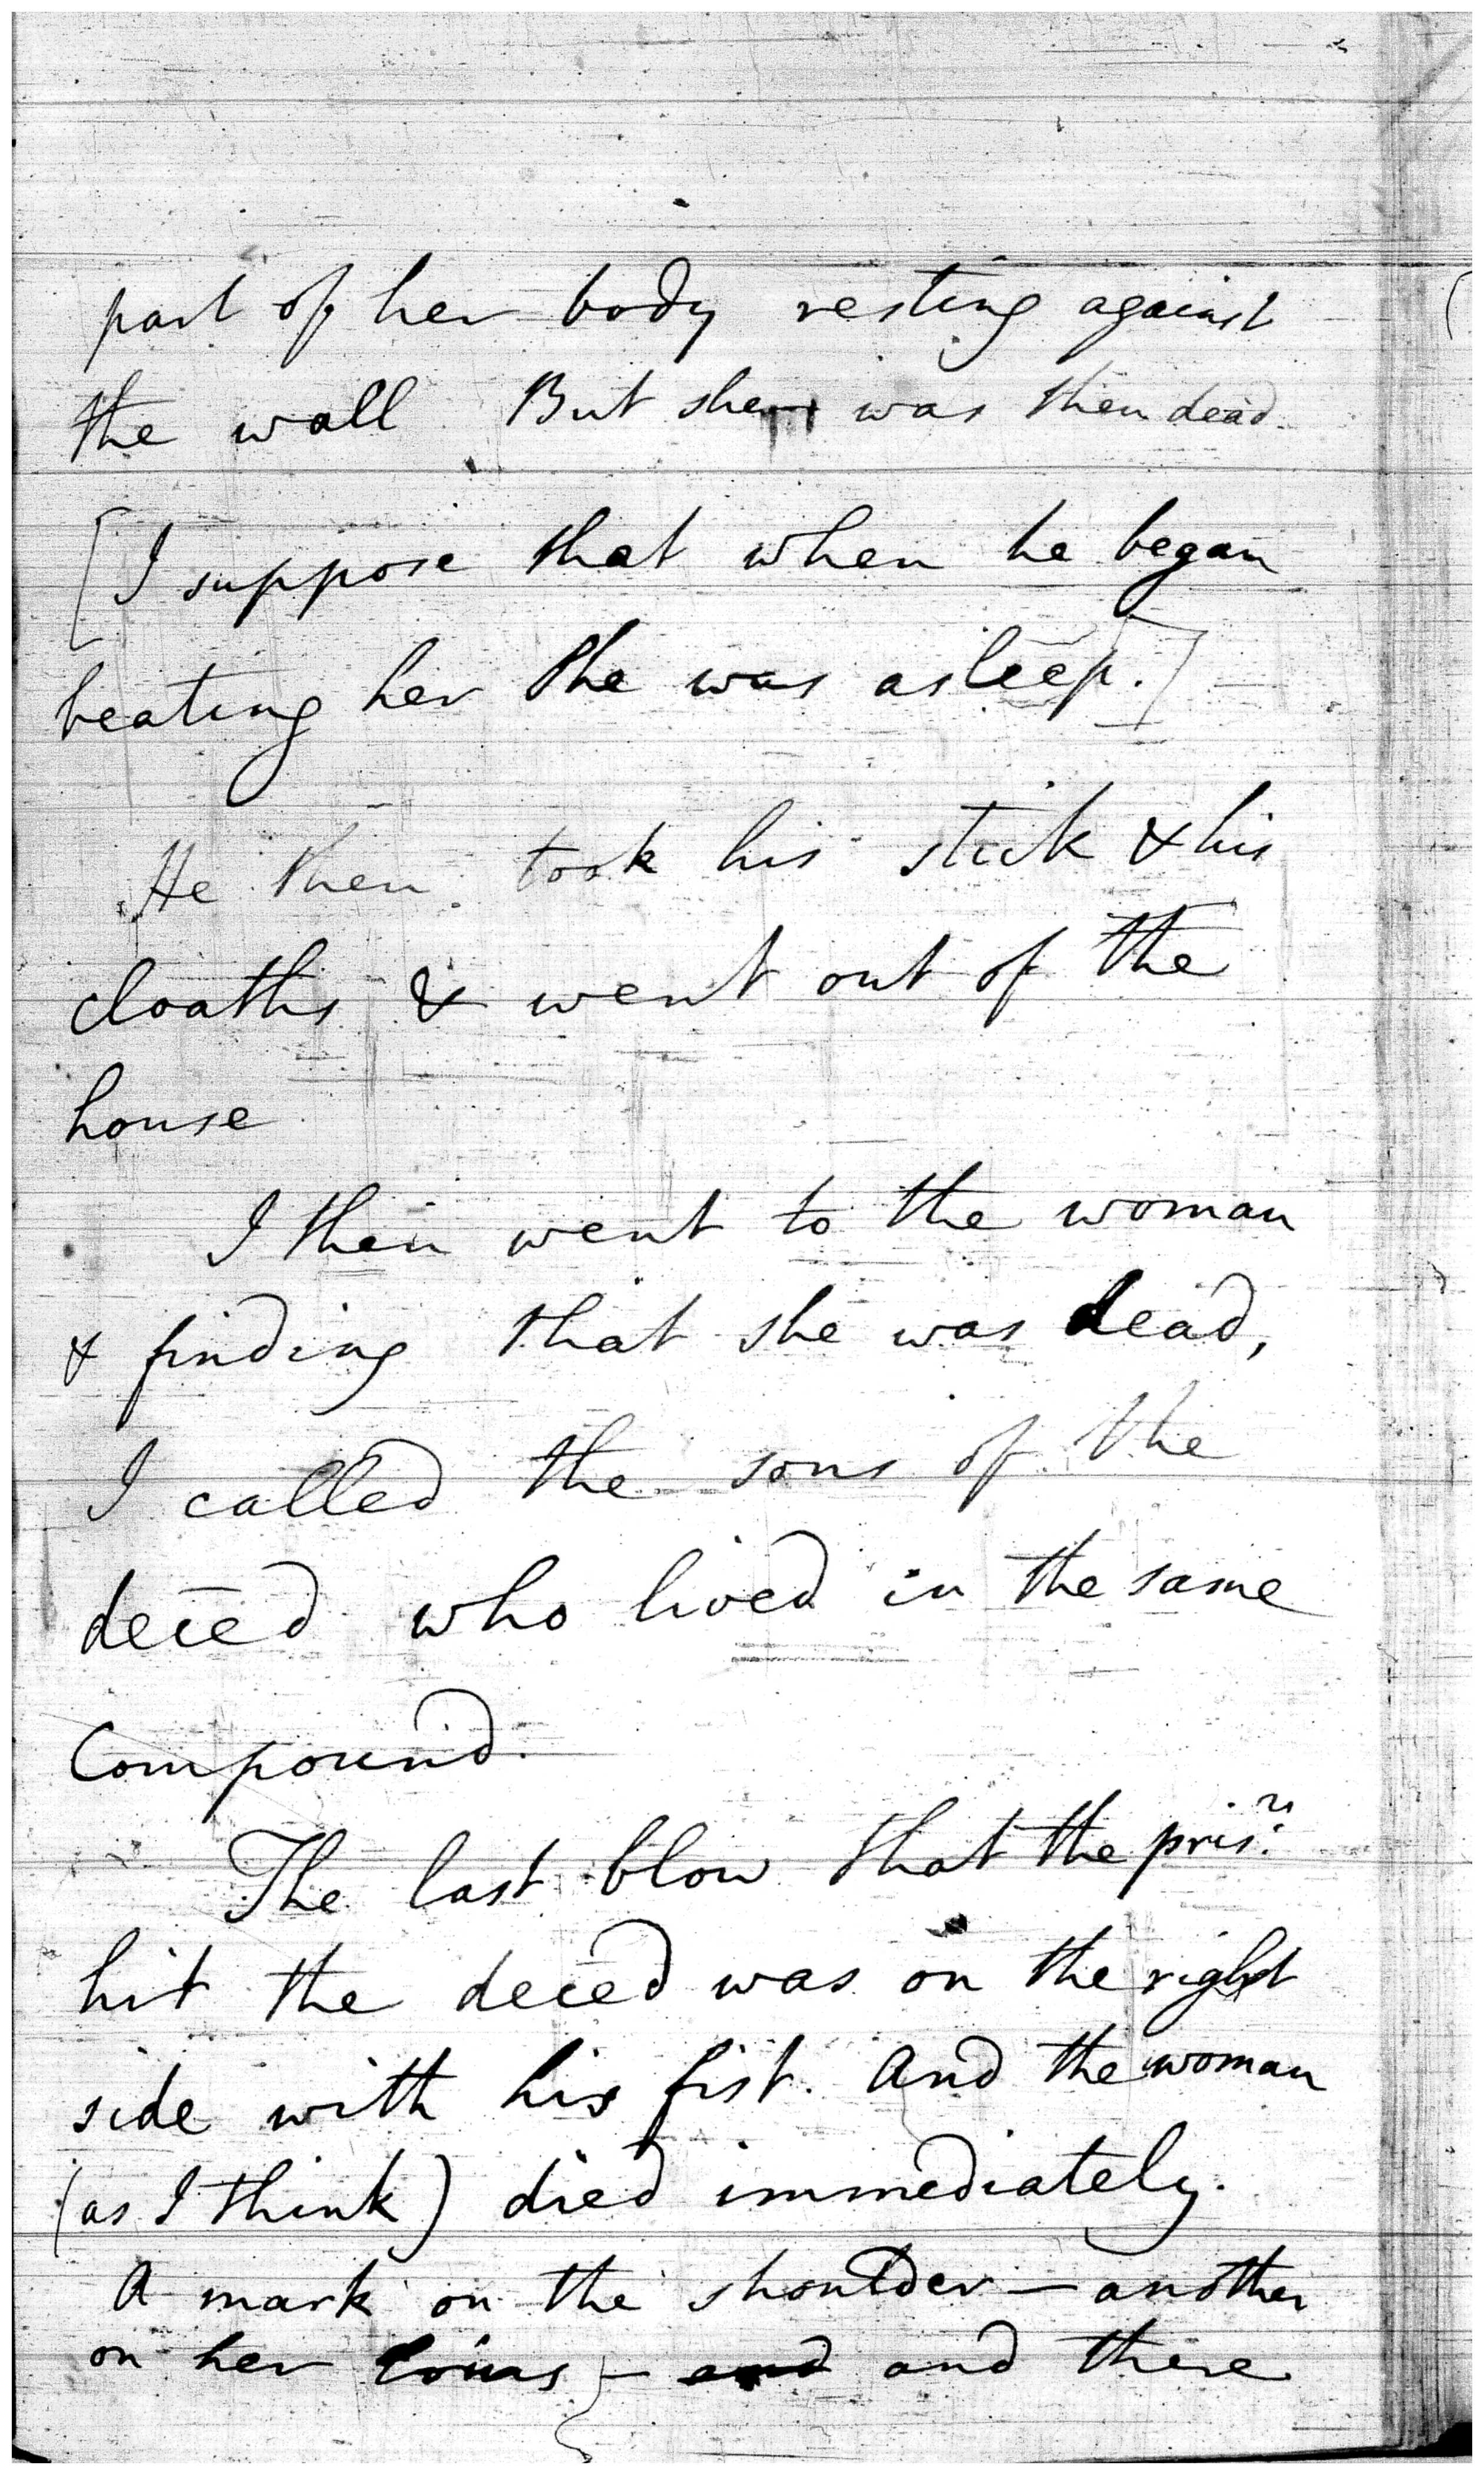 part of her body resting against
the wall But she was then dead
[I suppose that when he began
beating her She was asleep.]
He then took his stick & his
cloaths & went out of the
house
I then went to the woman
& finding that she was dead,
I called the sons of the
deced who lived in the same
Compound.
The last blow that the prisr.
hit the deced was on the right
side with his fist. And the woman
(as I think) died immediately.
A mark on the shoulder — another
on her loins — and and there